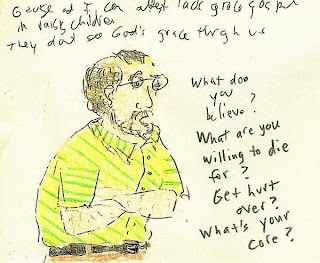 and I can lack grace
in children
They dont see God's grace through us
What doo
you
believe?
What are you
willing to die
for?
Get hurt
over?
What's your
core?